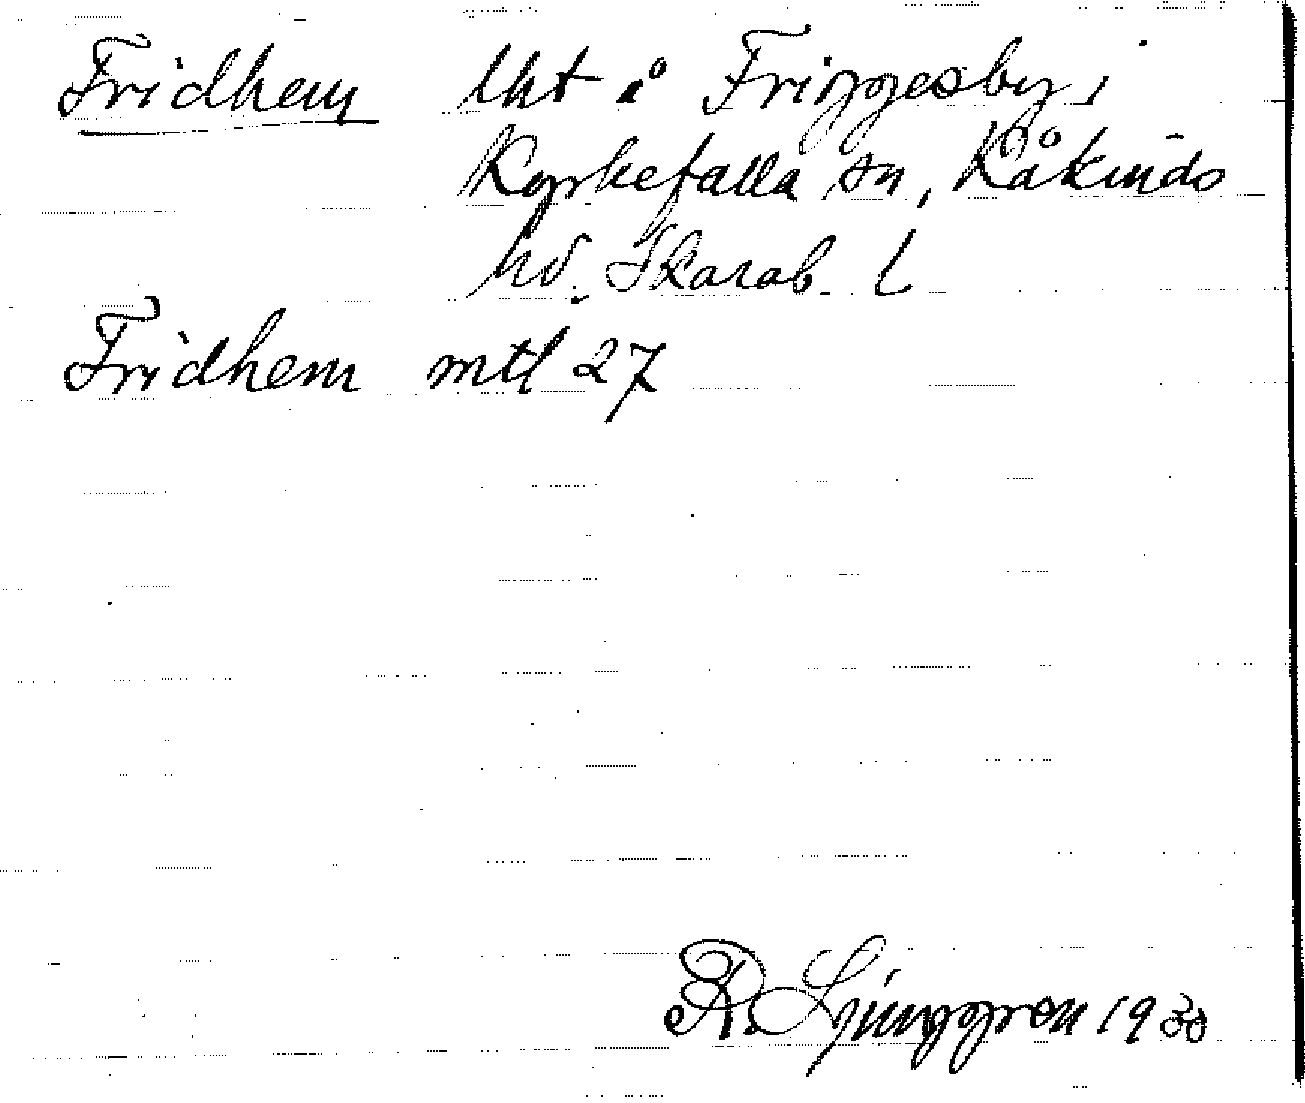 Fridhem lht å Friggesby i
Kyrkefalla sn, Kåkinds
hd. Skarab. l
Fridhem mtl 27
R. Ljunggren 1930